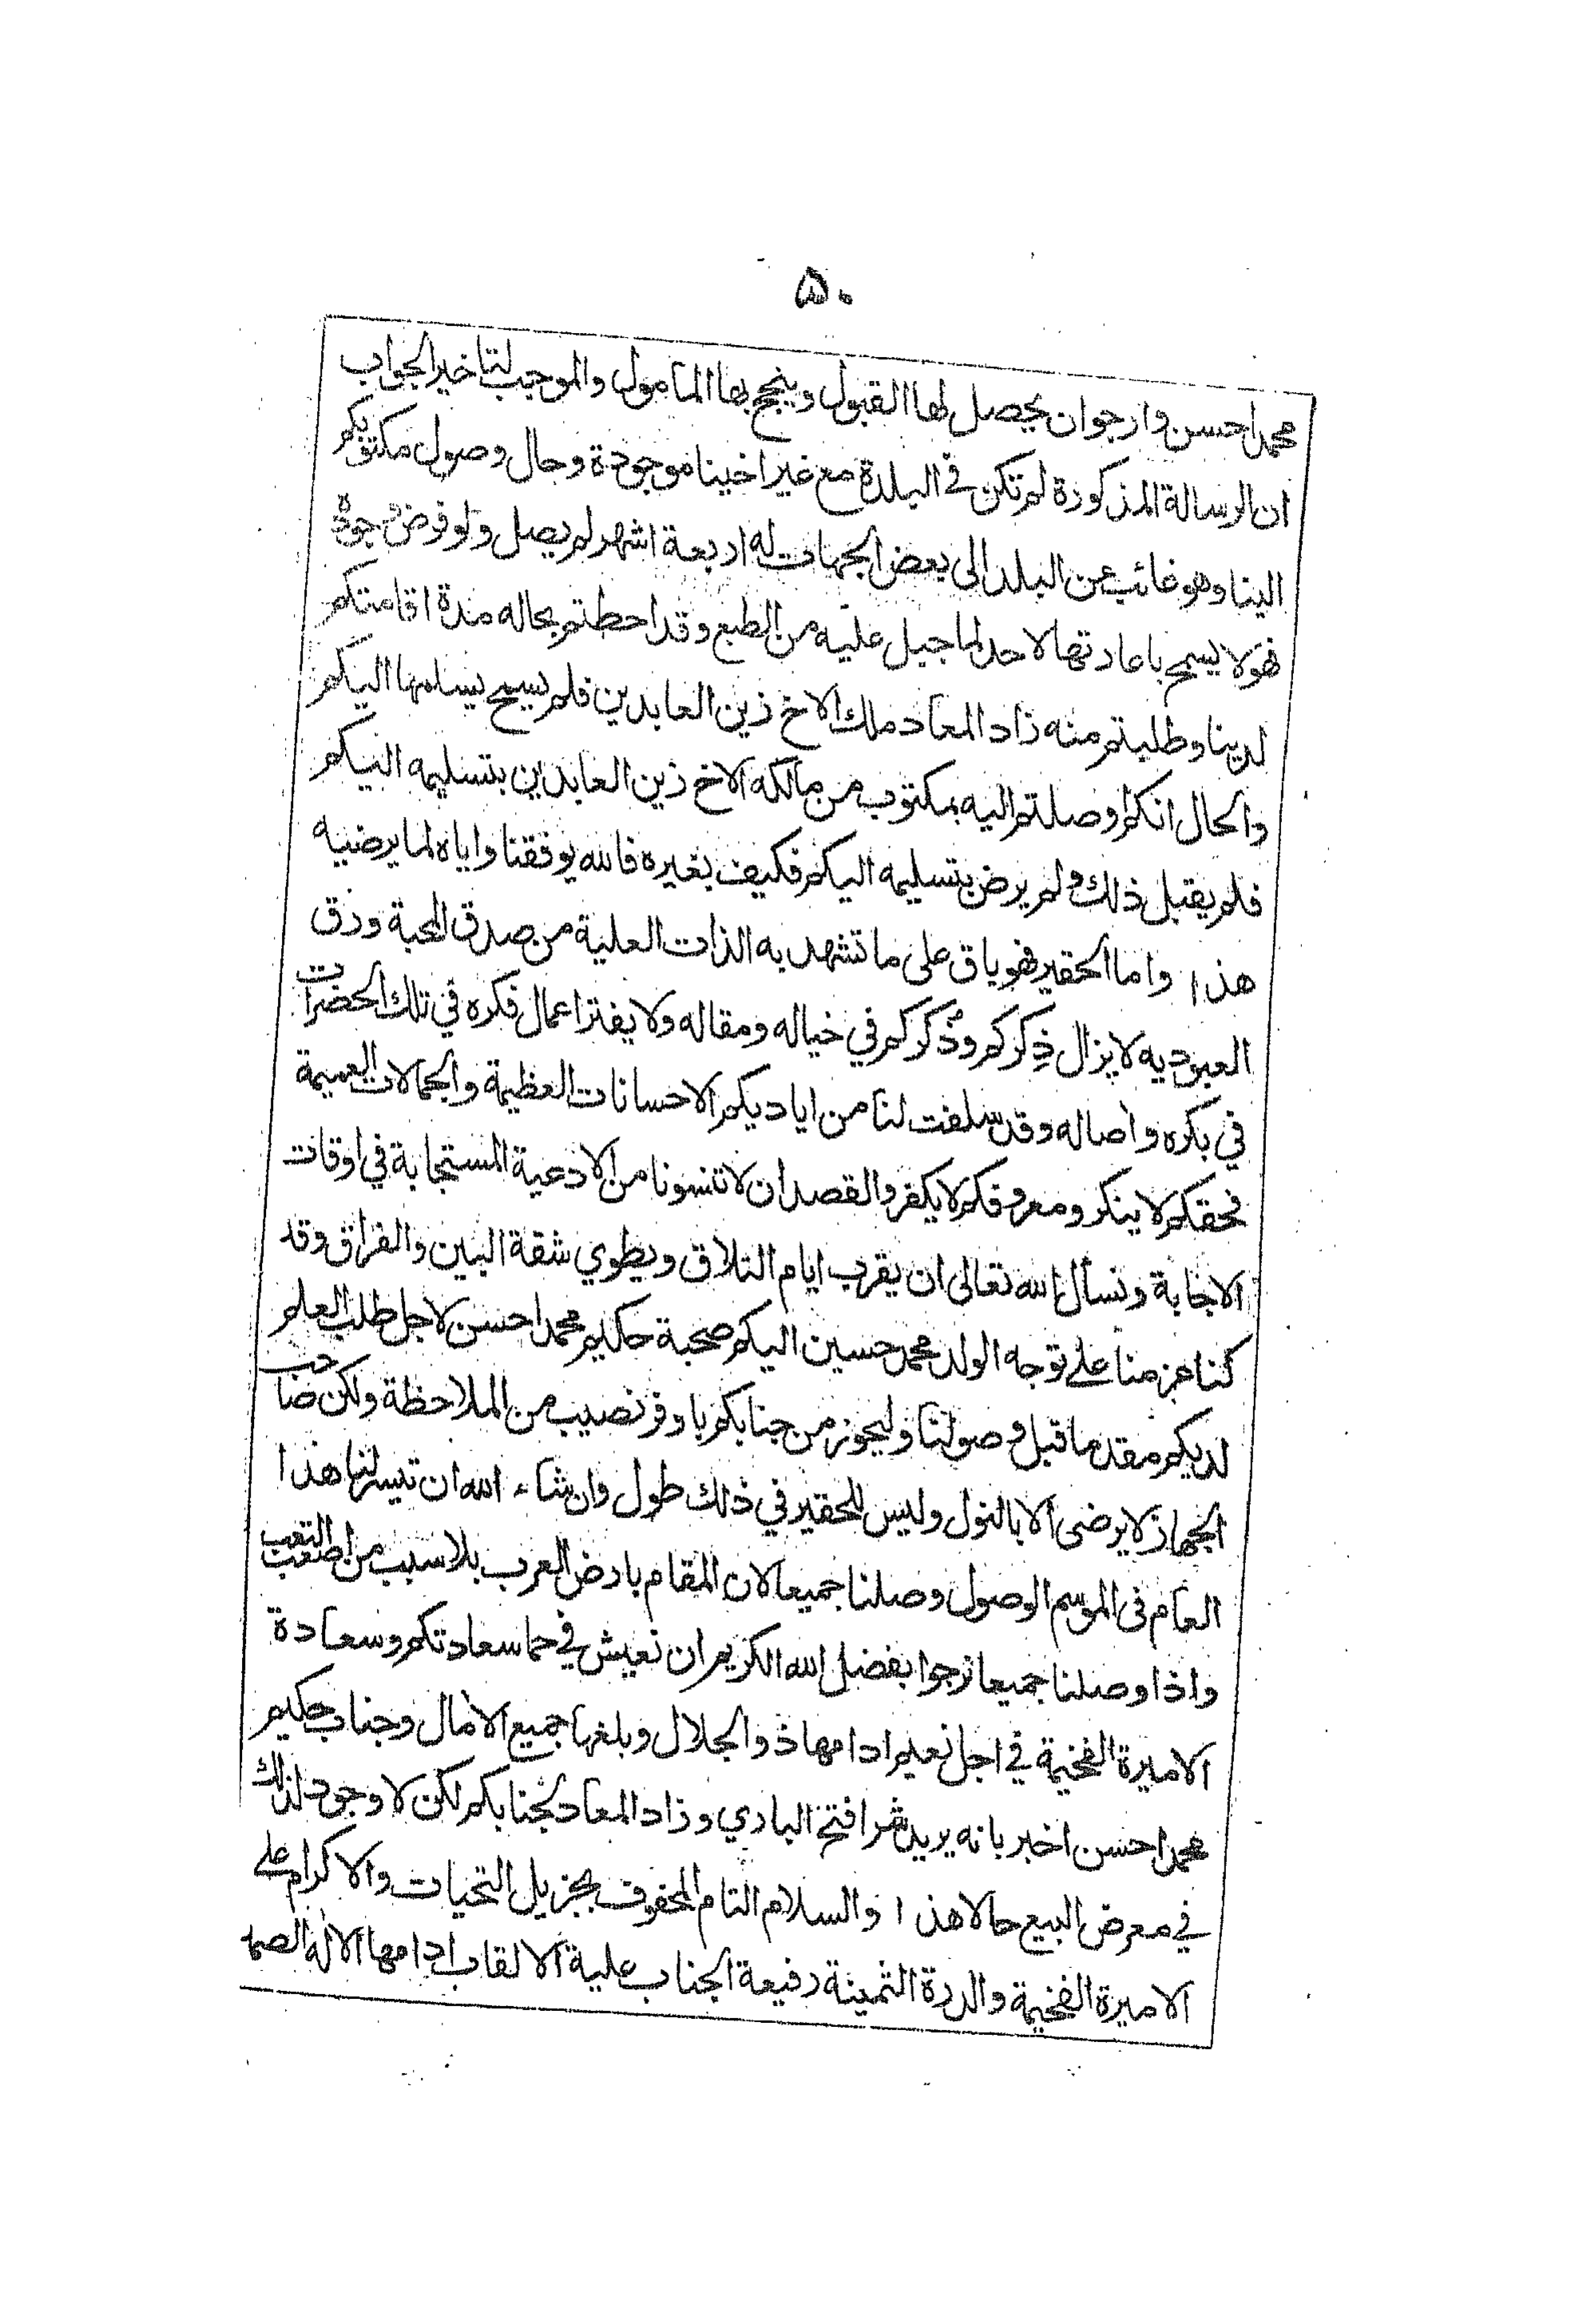 ۵۰
محمد احسن وارجوان يحصل لها القبول وينجح بها المأمول والموجب لتاخير الجواب
ان الرسالة المذكورة لم تكن في البلدة مع غير اخينا موجودة وحال وصول مكتوبكم
الينا وهو غائب عن البلد الى بعض الجهات له اربعة اشهر لم يصل ولو فرض وجوده
فهو لا يسمح باعادتها لاحد لما جبل عليه من الطبع وقد احطتم بحاله مدة اقامتكم
لدينا وطلبتم منه زاد المعاد ملك الاخ زين العابدين فلم يسمح بسلامها اليكم
والحال انكم اوصلتم اليه بمكتوب من مالكه الاخ زين العابدين بتسليمه اليكم
فلم يقبل ذلك ولم يرض بتسليمه اليكم فكيف بغيره فالله يوفقنا واياه لما يرضيه
هذا واما الحقير فهو باق على ما تشهد به الذات العلية من صدق المحبة ورق
العبوديه لا يزال ذِكركم وذُكركم في خياله ومقاله ولا يفتر اعمال فكره في تلك الحضرات
في بكره واصاله وقد سلفت لنا من اياديكم الاحسانات العظيمة والجمالات العميمة
فحقكم لا ينكر ومعروفكم لا يكفر والقصد ان لا تنسونا من الادعية المستجابة في اوقات
الاجابة ونسأل الله تعالى ان يقرب ايام التلاق ويطوي شقة البين والفراق وقد
كنا عزمنا على توجه الولد محمد حسين اليكم صحبة حكيم محمد احسن لاجل طلب العلم
لديكم مقدما قبل وصولنا وليحوز من جنابكم باوفر نصيب من الملاحظة ولكن صاحب
الجهاز لا يرضى الا بالنول وليس للحقير في ذلك طول وان شاء الله ان تيسر لنا هذا
العام فى الموسم الوصول وصلنا جميعا لان المقام بارض العرب بلا سبب من اصعب التعب
واذا وصلنا جميعا نرجوا بفضل الله الكريم ان نعيش في حما سعادتكم وسعادة
الاميرة الفخيمة في اجل نعيم ادامها ذو الجلال وبلغها جميع الآمال وجناب حكيم
محمد احسن اخبر بانه يريد شرا فتح الباري وزاد المعاد لجنابكم لكن لا وجود لذلك
في معرض البيع حالا هذا والسلام التام المحفوف بجزيل التحيات والاكرام على
الاميرة الفخيمة والدرة الثمينة رفيعة الجناب علية الالقاب ادامها الاله الصمد